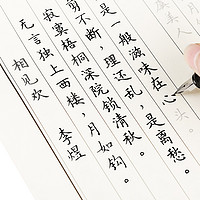 相见欢 李煜
无言独上西楼，月如钩。
寂寞梧桐深院锁清秋。
剪不断，理还乱，是离愁。
是一般滋味在心头
美人